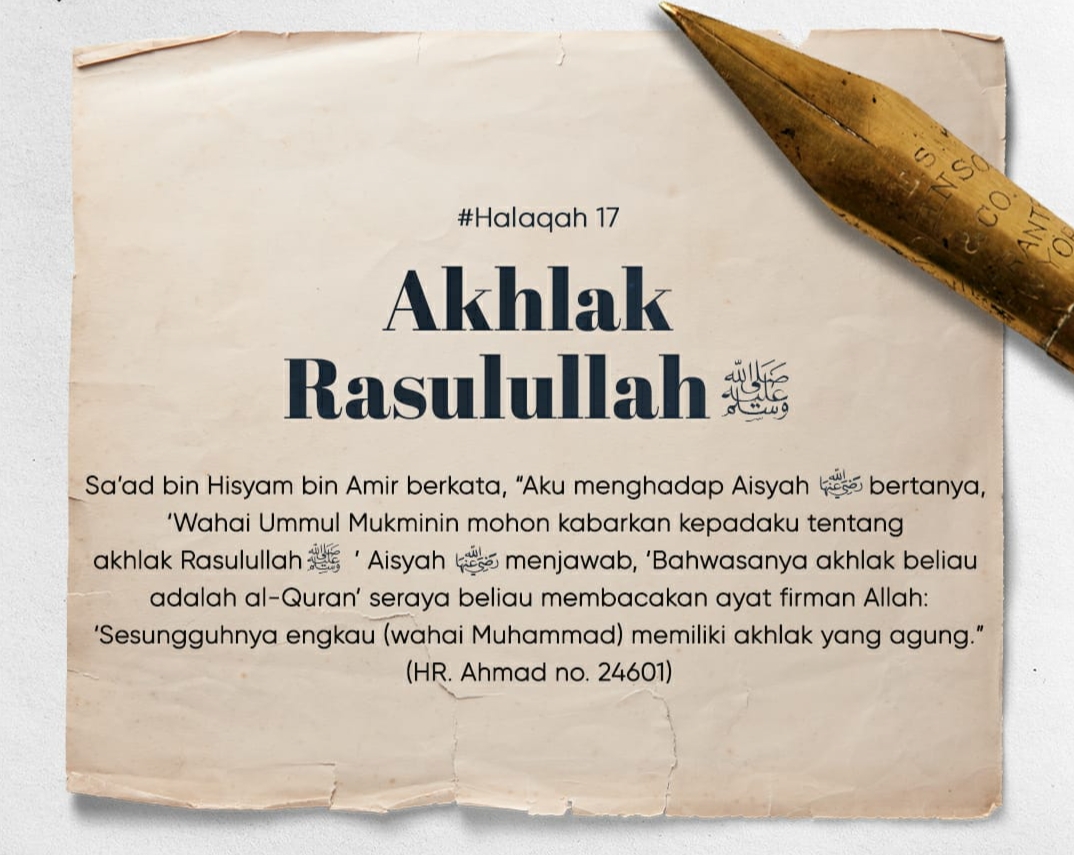 #Halaqah 17
Akhlak
Rasulullah ﷺ
Sa'ad bin Hisyam bin Amir berkata, "Aku menghadap Aisyah رضي الله عنها bertanya,
'Wahai Ummul Mukminin mohon kabarkan kepadaku tentang
akhlak Rasulullah ﷺ ' Aisyah رضي الله عنها menjawab, 'Bahwasanya akhlak beliau
adalah al-Quran' seraya beliau membacakan ayat firman Allah:
'Sesungguhnya engkau (wahai Muhammad) memiliki akhlak yang agung."
(HR. Ahmad no. 24601)
CO.